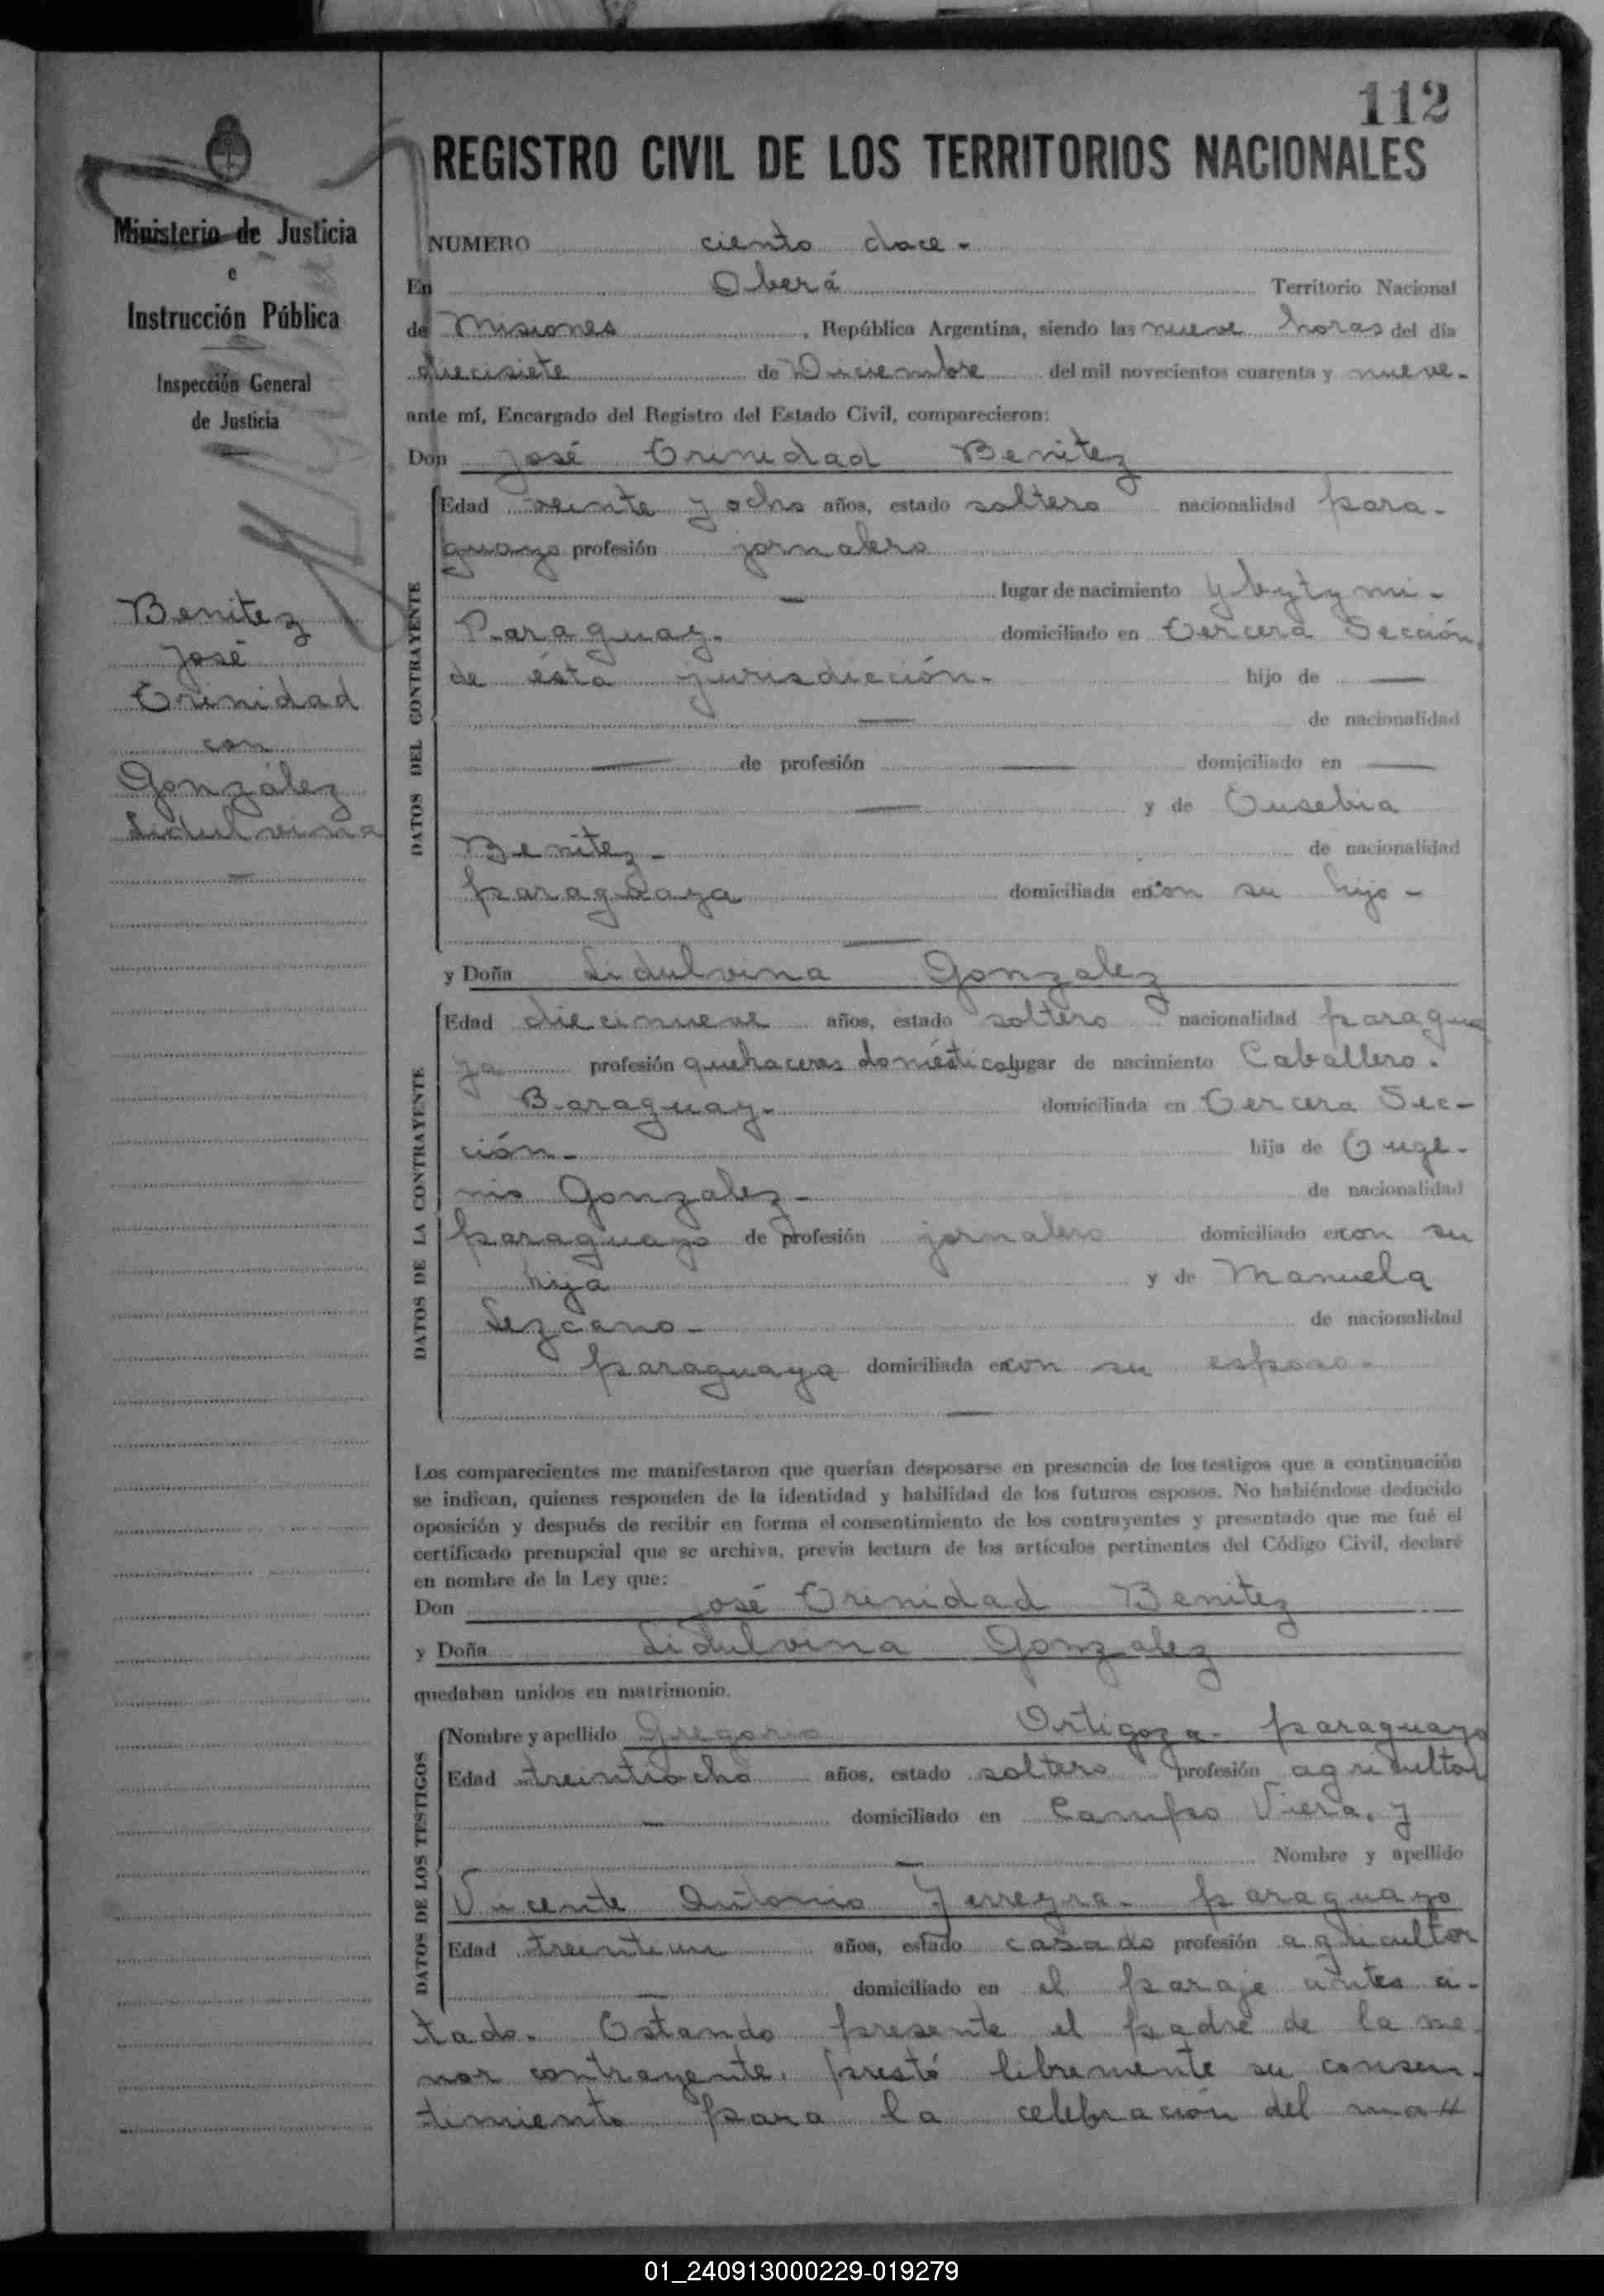 112
REGISTRO CIVIL DE LOS TERRITORIOS NACIONALES
Ministerio de Justicia
e
Instrucción Pública
Inspección General
de Justicia
Benitez
José
Trinidad
con
González
Lidulvina
NUMERO ciento doce.-
En Oberá Territorio Nacional
de Misiones, República Argentina, siendo las nueve horas del día
diecisiete de Diciembre del mil novecientos cuarenta y nueve.-
ante mí, Encargado del Registro del Estado Civil, comparecieron:
Don José Trinidad Benitez
DATOS DEL CONTRAYENTE
Edad veinte y ocho años, estado soltero nacionalidad para-
guayo profesión jornalero
— lugar de nacimiento Ybytymi-
Paraguay. domiciliado en Tercera Sección,
de ésta jurisdicción.- hijo de —
— de nacionalidad
— de profesión — domiciliado en —
— y de Eusebia
Benitez- de nacionalidad
paraguaya domiciliada en con su hijo-
—
y Doña Lidulvina Gonzalez
DATOS DE LA CONTRAYENTE
Edad diecinueve años, estado soltero nacionalidad paragua
ya profesión quehaceres domésticos lugar de nacimiento Caballero.
Paraguay.- domiciliada en Tercera Sec-
ción.- hija de Euge-
nio Gonzalez- de nacionalidad
paraguayo de profesión jornalero domiciliado en con su
hija y de Manuela
Lezcano- de nacionalidad
paraguaya domiciliada en con su esposo-
—
Los comparecientes me manifestaron que querían desposarse en presencia de los testigos que a continuación
se indican, quienes responden de la identidad y habilidad de los futuros esposos. No habiéndose deducido
oposición y después de recibir en forma el consentimiento de los contrayentes y presentado que me fué el
certificado prenupcial que se archiva, previa lectura de los artículos pertinentes del Código Civil, declaré
en nombre de la Ley que:
Don José Trinidad Benitez
y Doña Lidulvina Gonzalez
quedaban unidos en matrimonio.
DATOS DE LOS TESTIGOS
Nombre y apellido Gregorio Ortigoza- paraguayo
Edad treintiocho años, estado soltero profesión agricultor
— domiciliado en Campo Viera, y
— Nombre y apellido
Vicente Antonio paraguayo
Edad treintiun años, estado casado profesión agricultor
— domiciliado en el paraje antes ci-
tado. Estando presente el padre de la me-
nor contrayente, prestó libremente su consen-
timiento para la celebración del ma
01_240913000229-019279